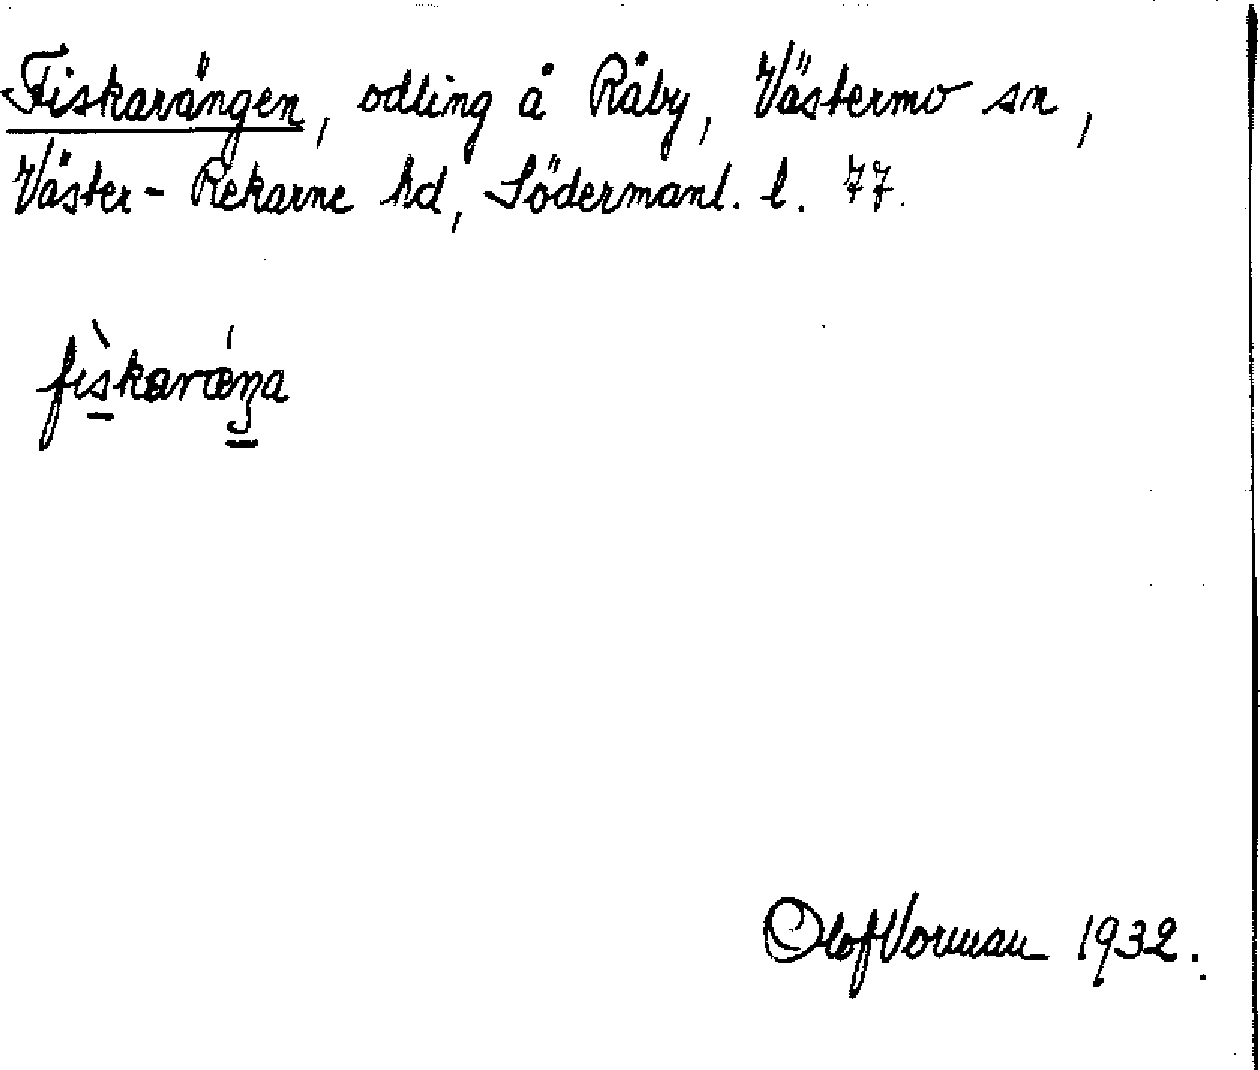 Fiskarängen, odling å Råby, Västermo sn,
Väster-Rekarne hd, Södermanl. l. 77.
fìskaræ´ŋa
Olof Vorman 1932.